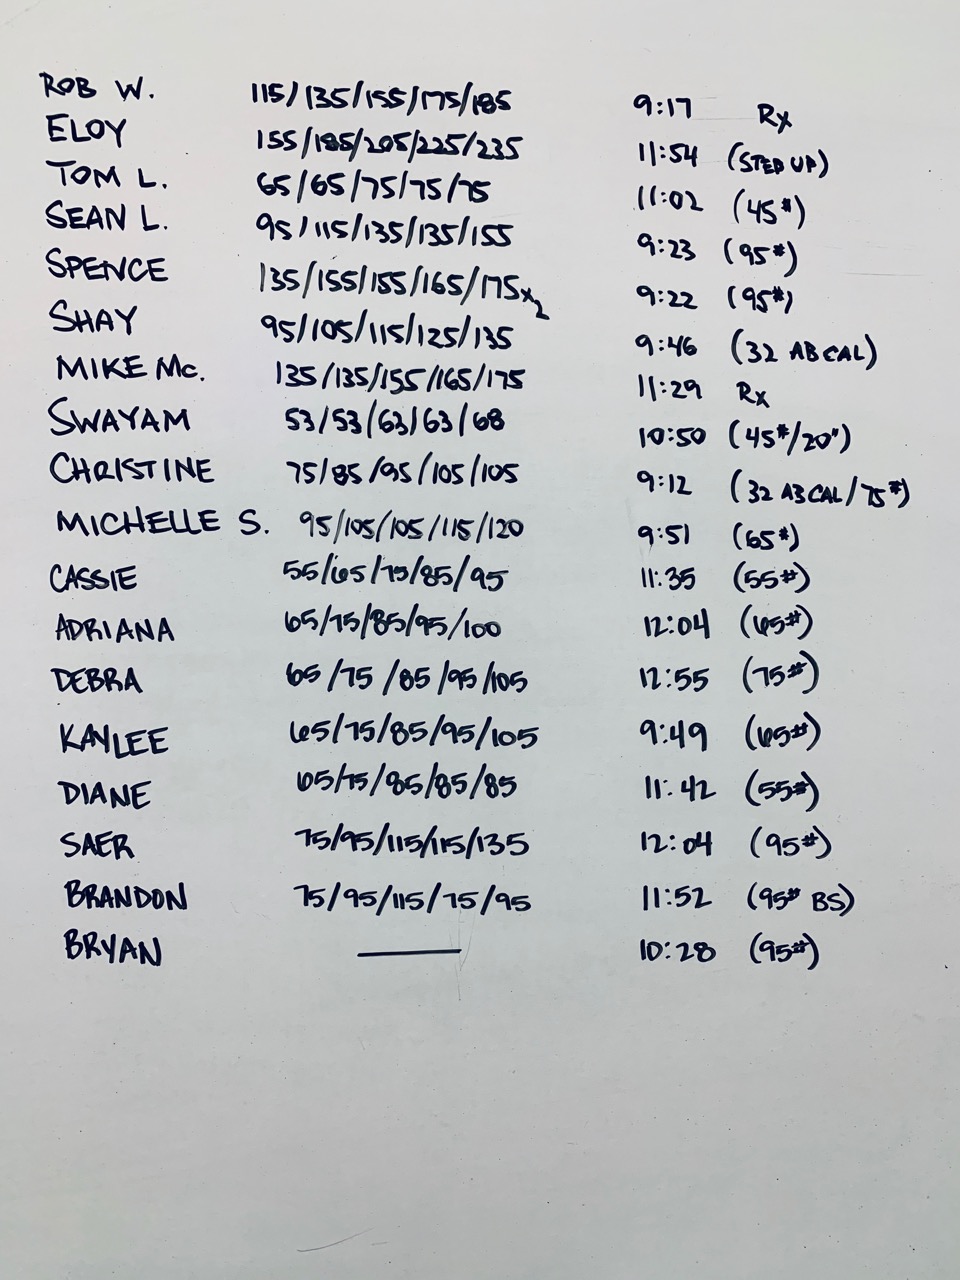 ROB W. 115/135/155/175/185 9:17 Rx
ELOY 155/185/205/225/235 11:54 (STEP UP)
TOM L. 65/65/75/75/75 11:02 (45#)
SEAN L. 95/115/135/135/155 9:23 (95#)
SPENCE 135/155/155/165/175x2 9:22 (95#)
SHAY 95/105/115/125/135 9:46 (32 AB CAL)
MIKE Mc. 135/135/155/165/175 11:29 Rx
SWAYAM 53/53/63/63/68 10:50 (45#/20")
CHRISTINE 75/85/95/105/105 9:12 (32 AB CAL/75#)
MICHELLE S. 95/105/105/115/120 9:51 (65#)
CASSIE 55/65/75/85/95 11:35 (55#)
ADRIANA 65/75/85/95/100 12:04 (65#)
DEBRA 65/75/85/95/105 12:55 (75#)
KAYLEE 65/75/85/95/105 9:49 (65#)
DIANE 65/75/85/85/85 11:42 (55#)
SAER 75/95/115/115/135 12:04 (95#)
BRANDON 75/95/115/75/95 11:52 (95# BS)
BRYAN — 10:28 (95#)